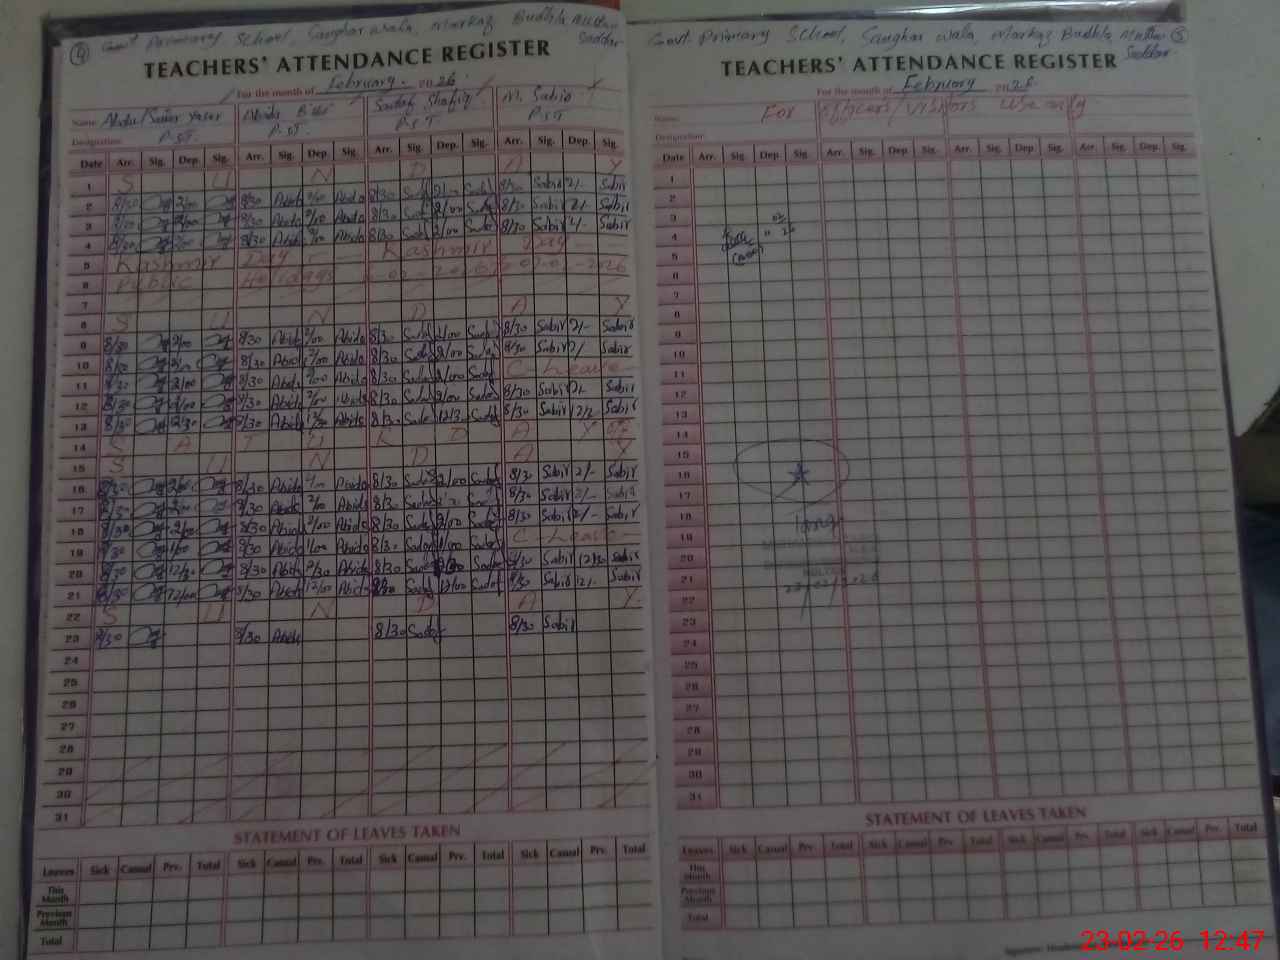 4 Govt Primary School, Sanghar wala, Markaz Budhla Multan Saddar
TEACHERS' ATTENDANCE REGISTER
For the month of February. 2026
Name Abdul Yasir Abida Bibi Sadaf Shafiq M. Sabir
Designation P.S.T. P.S.T. P.S.T P.S.T
Date Arr. Sig. Dep. Sig. Arr. Sig. Dep. Sig. Arr. Sig. Dep. Sig. Arr. Sig. Dep. Sig.
1 S U N D A Y
2 8/30 2/00 8/30 Abida 2/00 Abida 8/30 Sadaf 2/00 Sadaf 8/30 Sabir 2/- Sabir
3 8/30 2/00 8/30 Abida 2/00 Abida 8/30 Sadaf 2/00 Sadaf 8/30 Sabir 2/- Sabir
4 8/30 2/00 8/30 Abida 2/00 Abida 8/30 Sadaf 2/00 Sadaf 8/30 Sabir 2/- Sabir
5 Kashmir Day Kashmir Day
6 Public Holidays
7
8 S U N D A Y
9 8/30 2/00 8/30 Abida 2/00 Abida 8/30 Sadaf 2/00 Sadaf 8/30 Sabir 2/- Sabir
10 8/30 2/00 8/30 Abida 2/00 Abida 8/30 Sadaf 2/00 Sadaf 8/30 Sabir 2/- Sabir
11 8/30 2/00 8/30 Abida 2/00 Abida 8/30 Sadaf 2/00 Sadaf C-Leave
12 8/30 2/00 8/30 Abida 2/00 Abida 8/30 Sadaf 2/00 Sadaf 8/30 Sabir 2/- Sabir
13 8/30 12/30 8/30 Abida Abida 8/30 Sadaf 12/30 Sadaf 8/30 Sabir Sabir
14 S A T U R D A Y off
15 S U N D A Y
16 8/30 2/00 8/30 Abida 2/00 Abida 8/30 Sadaf 2/00 Sadaf 8/30 Sabir 2/- Sabir
17 8/30 2/00 8/30 Abida 2/00 Abida 8/30 Sadaf Sadaf 8/30 Sabir 2/- Sabir
18 8/30 2/00 8/30 Abida 2/00 Abida 8/30 Sadaf 2/00 Sadaf 8/30 Sabir 2/- Sabir
19 8/30 1/00 8/30 Abida 1/00 Abida 8/30 Sadaf 1/00 Sadaf C-Leave
20 8/30 12/30 8/30 Abida Abida 8/30 Sadaf Sadaf 8/30 Sabir 12/30 Sabir
21 8/30 12/00 8/30 Abida 12/00 Abida 8/30 Sadaf 12/00 Sadaf 8/30 Sabir 12/- Sabir
22 S U N D A Y
23 8/30 8/30 Abida 8/30 Sadaf 8/30 Sabir
24
25
26
27
28
29
30
31
STATEMENT OF LEAVES TAKEN
Leaves Sick Casual Prv. Total Sick Casual Prv. Total Sick Casual Prv. Total Sick Casual Prv. Total
This Month
Previous Month
Total
Govt. Primary School, Sanghar wala Markaz Budhla Multan 5 Saddar
TEACHERS' ATTENDANCE REGISTER
For the month of February 2026
Name For officers/Visitors Use only
Designation
Date Arr. Sig. Dep. Sig. Arr. Sig. Dep. Sig. Arr. Sig. Dep. Sig. Arr. Sig. Dep. Sig.
1
2
3
4
5
6
7
8
9
10
11
12
13
14
15
16
17
18
19
20
21
22
23
24
25
26
27
28
29
30
31
STATEMENT OF LEAVES TAKEN
Leaves Sick Casual Prv. Total Sick Casual Prv. Total Sick Casual Prv. Total Sick Casual Prv. Total
This Month
Previous Month
Total
23-02-26 12:47